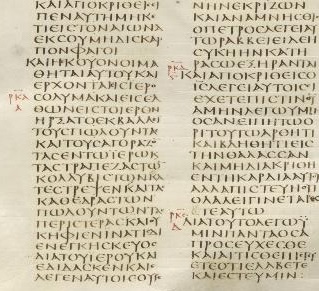 ΚΑΙΑΠΟΚΡΙΘΕΙϹ
ΠΕΝΑΥΤΗΜΗΚ
ΤΙΕΙϹΤΟΝΑΙΩΝΑ
ΕΚϹΟΥΜΗΔΙϹΚΑΡ
ΠΟΝΦΑΓΟΙ
ΚΑΙΗΚΟΥΟΝΟΙΜΑ
ΘΗΤΑΙΑΥΤΟΥΚΑΙ
ΕΡΧΟΝΤΑΙΕΙϹΙΕΡ
ϹΟΛΥΜΑΚΑΙΕΙϹΕΛ
ΘΩΝΕΙϹΤΟΙΕΡΟΝ
ΗΡΞΑΤΟΕΚΒΑΛΛΙ
ΤΟΥϹΠΩΛΟΥΝΤΑ
ΚΑΙΤΟΥϹΑΓΟΡΑΖ
ΤΑϹΕΝΤΩΙΕΡΩ
ΤΑϹΤΡΑΠΕΖΑϹΤΩ
ΚΟΛΛΥΒΙϹΤΩΝΚΑ
ΤΕϹΤΡΕΨΕΝΚΑΙΤΑ
ΚΑΘΕΔΡΑϹΤΩΝ
ΠΩΛΟΥΝΤΩΝΤΑ
ΠΕΡΙϹΤΕΡΑϹΚΑΙΟΥ
ΚΗΦΙΕΝΙΝΑΤΙϹΔΙ
ΕΝΕΓΚΗϹΚΕΥΟϹ
ΔΙΑΤΟΥΙΕΡΟΥΚΑΙ
ΕΔΙΔΑϹΚΕΝΚΑΙΕ
ΛΕΓΕΝΑΥΤΟΙϹΟΥ
ΝΗΝΕΚΡΙΖΩΝ
ΚΑΙΑΝΑΜΝΗϹΘΙϹ
ΟΠΕΤΡΟϹΛΕΓΕΙΑΥ
ΤΩΡΑΒΒΕΙΙΔΕΗ
ϹΥΚΗΗΝΚΑΤΗ
ΡΑϹΩΕΞΗΡΑΝΤΑΙ
ΚΑΙΑΠΟΚΡΙΘΕΙϹΟ
ΙϹΛΕΓΕΙΑΥΤΟΙϹ
ΕΙΕΧΕΤΕΠΙϹΤΙΝΘΥ
ΑΜΗΝΛΕΓΩΥΜΙΝ
ΟϹΑΝΕΙΠΗΤΩΟ
ΡΙΤΟΥΤΩΑΡΘΗΤΙ
ΚΑΙΒΛΗΘΗΤΙΕΙϹ
ΤΗΝΘΑΛΑϹϹΑΝ
ΚΑΙΜΗΔΙΑΚΡΙΘΗ
ΕΝΤΗΚΑΡΔΙΑΑΥΤΟΥ
ΑΛΛΑΠΙϹΤΕΥΗΟΤΙ
ΟΛΑΛΕΙΓΙΝΕΤΑΙ
ΕϹΤΑΙΑΥΤΩ
ΔΙΑΤΟΥΤΟΛΕΓΩΥ
ΜΙΝΠΑΝΤΑΟϹΑ
ΠΡΟϹΕΥΧΕϹΘΕ
ΚΑΙΑΙΤΙϹΘΕΠΙϹΤΕΥ
ΕΤΕΟΤΙΕΛΑΒΕΤΕ
ΚΑΙΕϹΤΕΥΜΙΝ